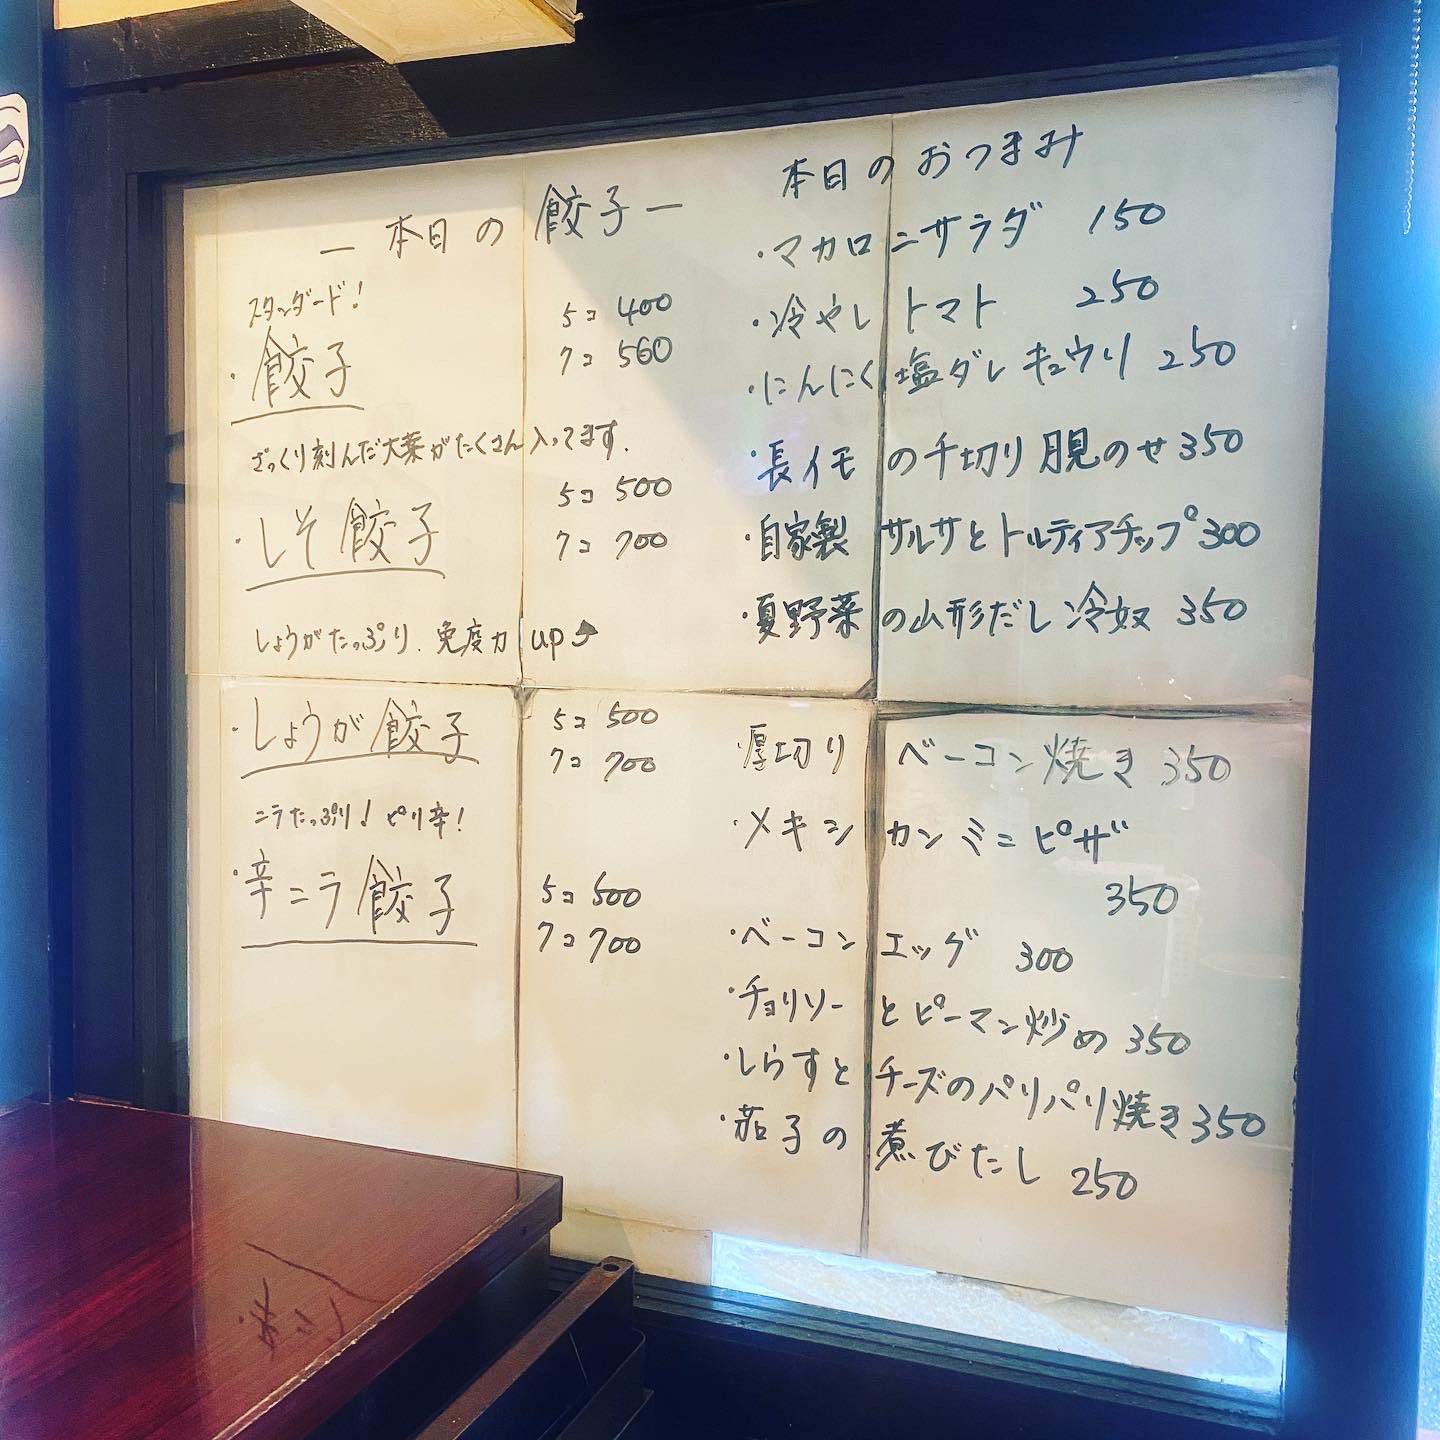 ― 本日の餃子 ―
スタンダード!
・餃子
5コ 400
7コ 560
ざっくり刻んだ大葉がたくさん入ってます.
・しそ餃子
5コ 500
7コ 700
しょうがたっぷり.免疫力up
・しょうが餃子
5コ 500
7コ 700
ニラたっぷり!ピリ辛!
・辛ニラ餃子
5コ 500
7コ 700
本日のおつまみ
・マカロニサラダ 150
・冷やしトマト 250
・にんにく塩ダレキュウリ 250
・長イモの千切り月見のせ 350
・自家製サルサとトルティアチップ 300
・夏野菜の山形だし冷奴 350
・厚切りベーコン焼き 350
・メキシカンミニピザ
350
・ベーコンエッグ 300
・チョリソーとピーマン炒め 350
・しらすとチーズのパリパリ焼き 350
・茄子の煮びたし 250